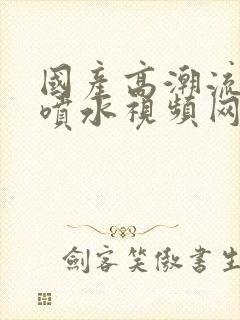 國產高潮流
噴水視頻网
劍客笑傲書生